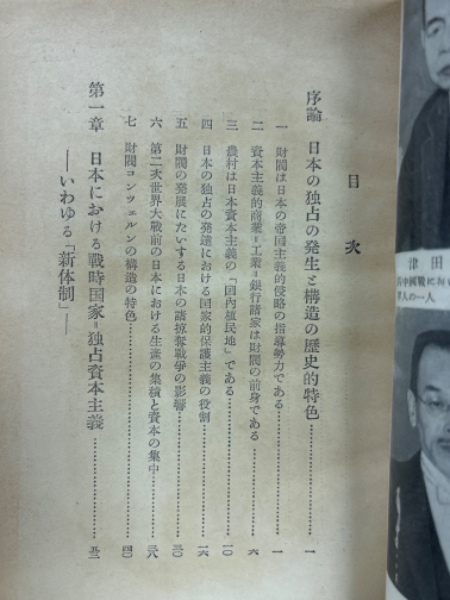 目次
序論 日本の独占の発生と構造の歴史的特色……一
一 財閥は日本の帝国主義的侵略の指導勢力である……一
二 資本主義的商業=工業=銀行諸家は財閥の前身である……六
三 農村は日本資本主義の「国内植民地」である……一〇
四 日本の独占の発達における国家的保護主義の役割……一六
五 財閥の発展にたいする日本の諸掠奪戦争の影響……二〇
六 第二次世界大戦前の日本における生産の集積と資本の集中……二八
七 財閥コンツェルンの構造の特色……四〇
第一章 日本における戦時国家=独占資本主義……五二
――いわゆる「新体制」――
津田